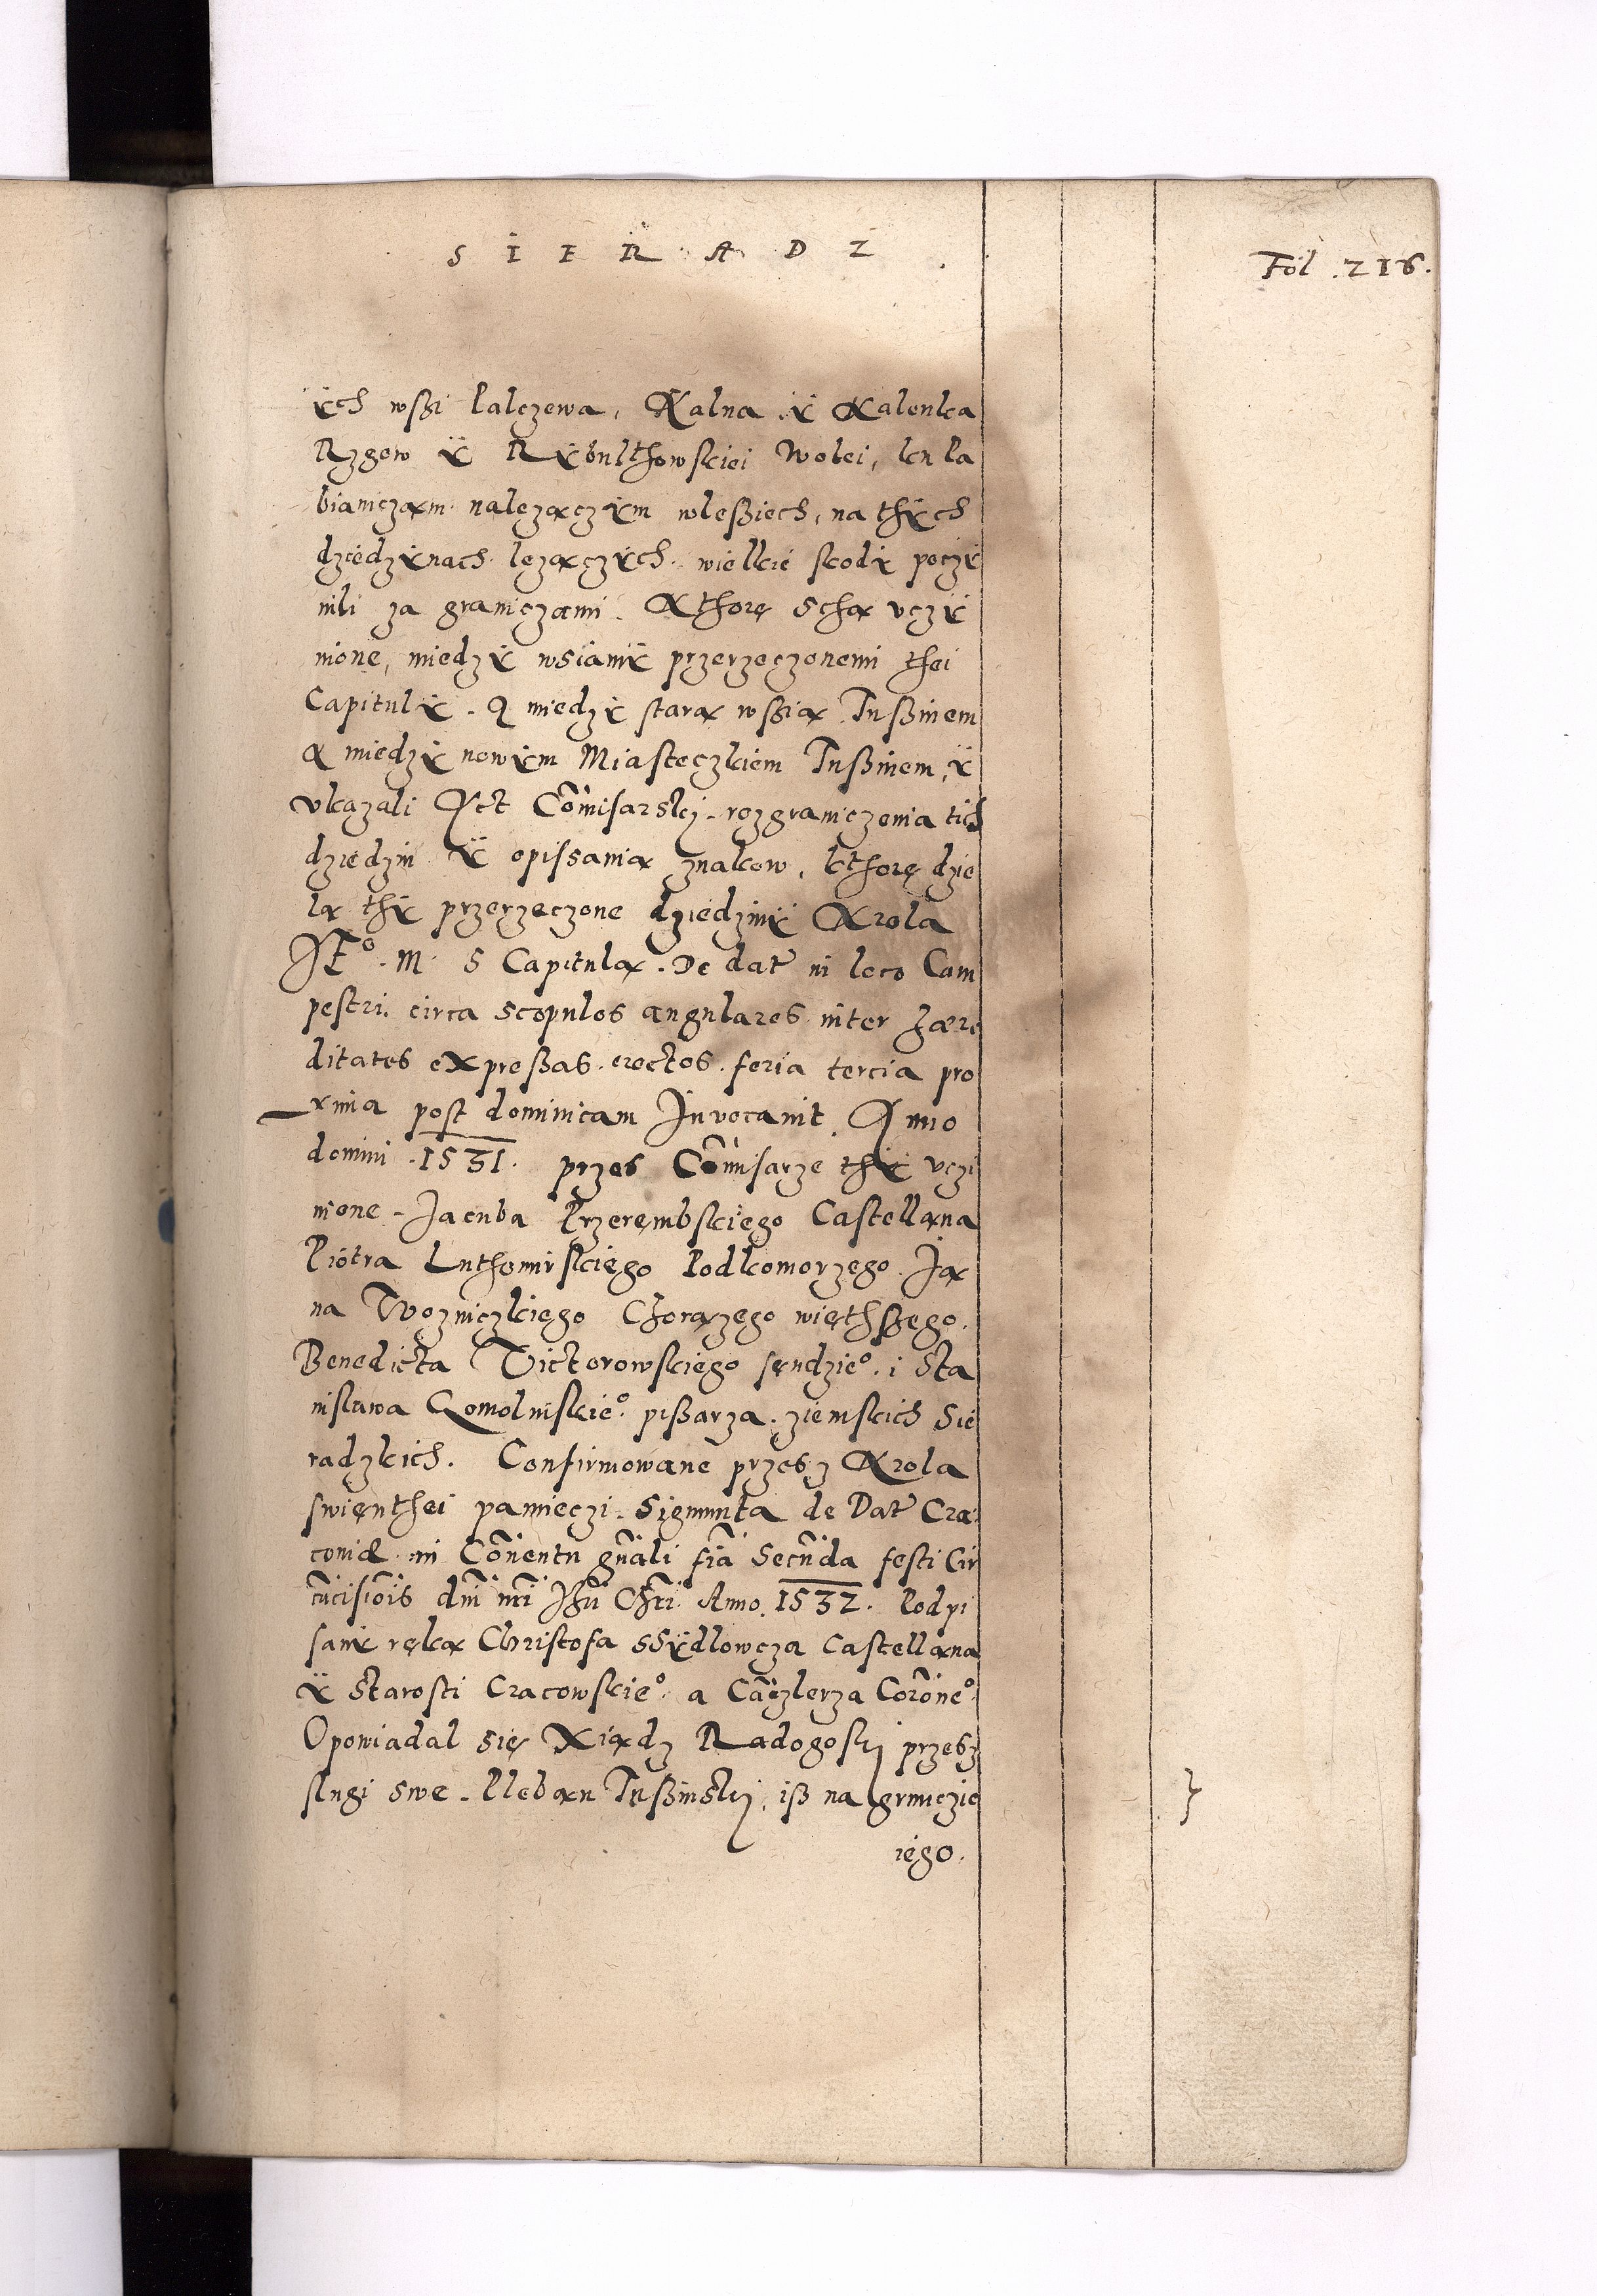 SIERADZ
Fol. 216.
ÿch wsßi Palczewa, Kalna ÿ Kalenka
Rzgow ÿ Rÿbulthowskiei Wolei, ku Pa
bianiczam nalezączÿm wlesßiech, na thÿch
dziedzÿnach lezączÿch wielkie skodÿ poczÿ
nili za graniczami. Kthorę sthą vczÿ
nione, miedzÿ wsiamÿ przerzeczonemi thei
Capitulÿ. A miedzÿ starą wsßią Tusßinem
a miedzÿ nowÿm Miasteczkiem Tusßinem, ÿ
vkazali Act Com̃isarskj rozgraniczenia tich
dziedzin ÿ opissanią znakow, kthorę dzie
lą thÿ przerzeczone dziedzinÿ Krola
JEº. M. s Capitulą. De dat in loco Cam
pestri. circa scopulos angulares inter hære
ditates expreßas erectos. feria tercia pro
xima post dominicam Invocauit. Anno
domini .1531. przes Com̃isarze thÿ vczi
nione. Jacuba Przerembskiego Castellana
Piotra Luthomirskiego Podkomorzego Ja
na Wozniczkiego Chorązego większego.
Benedicta Victorowskiego sęndzieº. i Sta
nislawa Gomolinskieº. pißarza. ziemskich Sie
radzkich. Confirmowane przesz Krola
swięnthei pamieczi. Sigmunta de Dat Cra
couiæ in Cõnentu gñali fiã Secũda festi Cir
cũcisiõis dñi nr̃i Jhũ Chr̃i Anno 1532. Podpi
sanÿ ręką Christofa sSÿdlowcza Castellana
ÿ Starosti Cracowskieº. a Cãczlerza Corõneº.
Opowiadal się Xiądz Radogoskj przesz
slugi swe. Pleban Tusßinskj, iß na grunczie
iego.